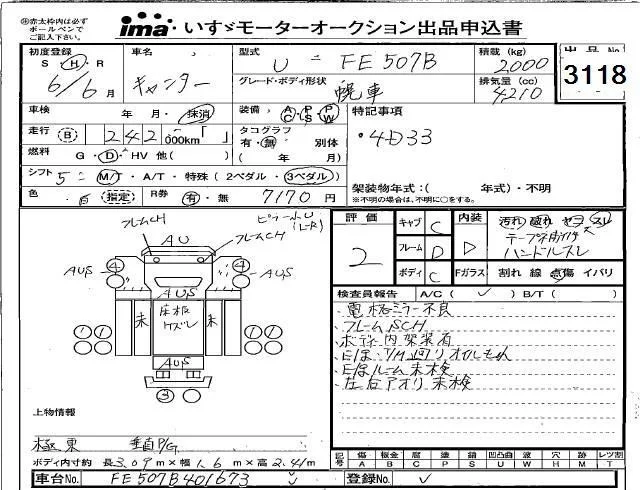 ㊟赤太枠内は必ず
ボールペンで
ご記入下さい。
ima いすゞモーターオークション出品申込書
初度登録 車名 型式 積載 (kg) 出品No.
S・H・R キャンター U-FE507B 2000
6/6月 グレード・ボディ形状 排気量 (cc) 3118
幌車 4210
車検 年 月・抹消 装備 AC PS PW 特記事項
走行 B 242,000km「 」 タコグラフ 有・無 別体 ・4D33
燃料 G・D・HV 他( ) ( 年 月)
シフト 5 M/T・A/T・特殊 (2ペダル・3ペダル) 架装物年式:( 年式)・不明
※不明の場合は、不明に○をする。
色 白 指定 R券 有・無 7170円
評価 キャブ C 内装 汚れ 破れ ヤコ スレ
2 フレーム D D ハンドルスレ
ボディ C Fガラス 割れ 線 点傷 イバリ
フレームCH ピラー小U (L-R)
AU フレームCH
④ ④
AUS AUS
AUS
未 床板 ケズレ 未
AUS
③
検査員報告 A/C ( ✓ ) B/T ( )
・電格ミラー不良
・フレームSCH
・ボディ内架装有
・E/ほ T/M廻りオイルもれ
・E/ほルーム未検
・左右アオリ未検
上物情報
極東 垂直P/G
ボディ内寸約 長3.09m×幅1.6m×高2.41m
記号 傷 A 板金 B 腐 C 塗 P 錆 S 凹凸曲 U 波 W 穴 H 跡 M レツ割 T
車台No. FE507B401673 登録No. ✓